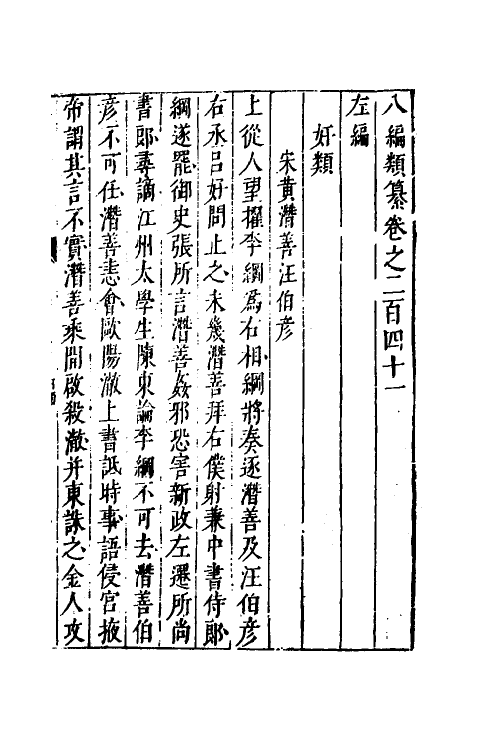 八編類纂卷之二百四十一
左編
奸類
宋黃潛善汪伯彥
上從人望擢李綱為右相綱將奏逐潛善及汪伯彥
右丞呂好問止之未幾潛善拜右僕射兼中書侍郎
綱遂罷御史張所言潛善姦邪恐害新政左遷所尚
書郎尋謫江州太學生陳東論李綱不可去潛善伯
彥不可任潛善恚會歐陽澈上書詆時事語侵宮掖
帝謂其言不實潛善乘間啟殺澈并東誅之金人攻